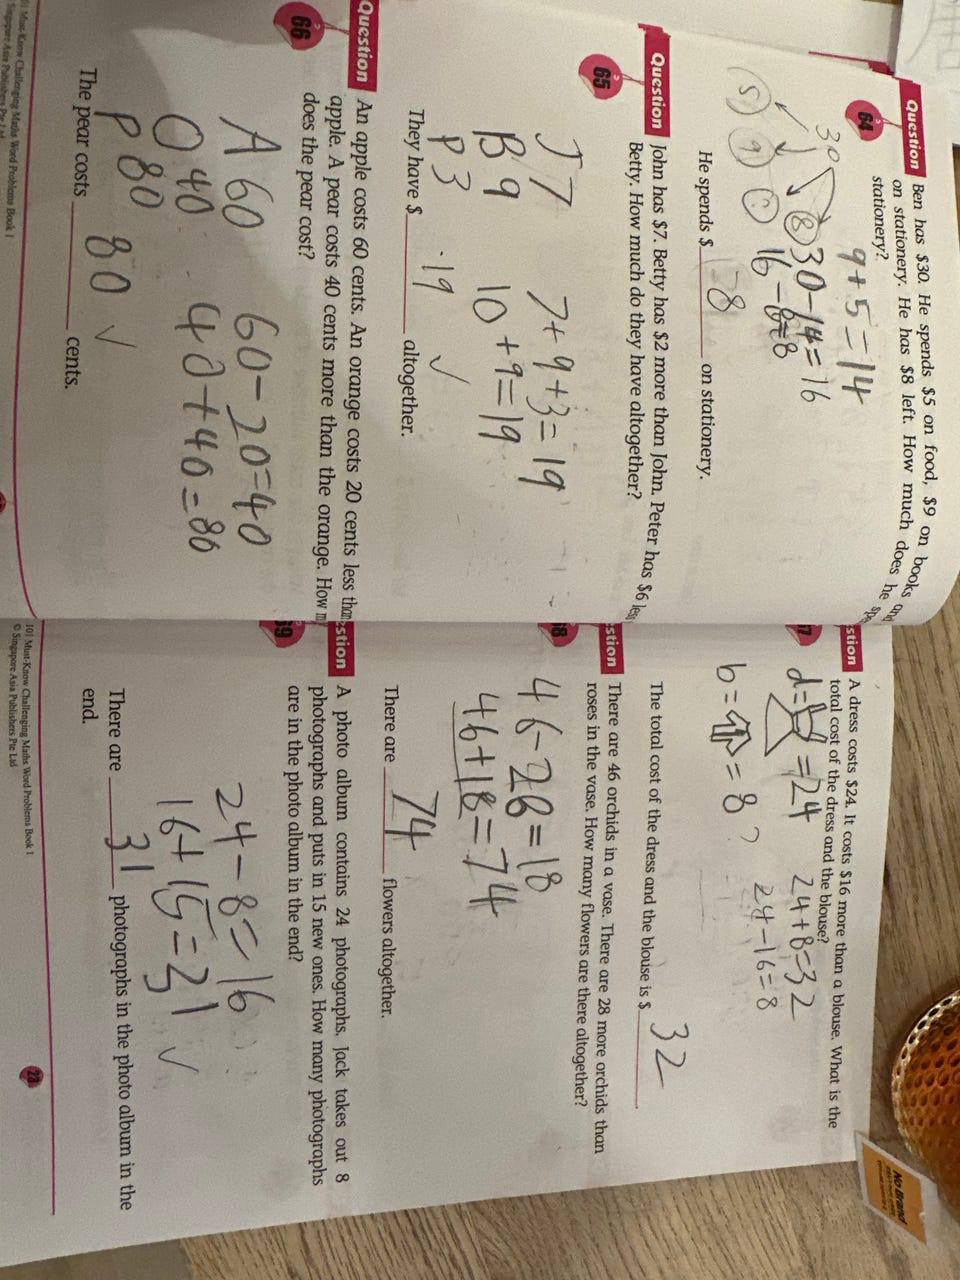 Question 64
Ben has $30. He spends $5 on food, $9 on books and
on stationery. He has $8 left. How much does he spe
stationery?
9+5=14
30
30-14=16
16-8=8
5 9 8
He spends $ 8 on stationery.
Question 65
John has $7. Betty has $2 more than John. Peter has $6 less
Betty. How much do they have altogether?
J 7
B 9
P 3
7+9+3=19
10+9=19
They have $ 19 altogether. ✓
Question 66
An apple costs 60 cents. An orange costs 20 cents less than
apple. A pear costs 40 cents more than the orange. How m
does the pear cost?
A 60
O 40
P 80
60-20=40
40+40=80
The pear costs 80 cents. ✓
101 Must-Know Challenging Maths Word Problems Book 1
Singapore Asia Publishers Pte Ltd
stion 67
A dress costs $24. It costs $16 more than a blouse. What is the
total cost of the dress and the blouse?
d= =24
24+8=32
24-16=8
b= =8 ?
The total cost of the dress and the blouse is $ 32 .
stion 68
There are 46 orchids in a vase. There are 28 more orchids than
roses in the vase. How many flowers are there altogether?
46-28=18
46+18=74
There are 74 flowers altogether.
estion 69
A photo album contains 24 photographs. Jack takes out 8
photographs and puts in 15 new ones. How many photographs
are in the photo album in the end?
24-8=16
16+15=31 ✓
There are 31 photographs in the photo album in the
end.
101 Must-Know Challenging Maths Word Problems Book 1
© Singapore Asia Publishers Pte Ltd
23
No Brand